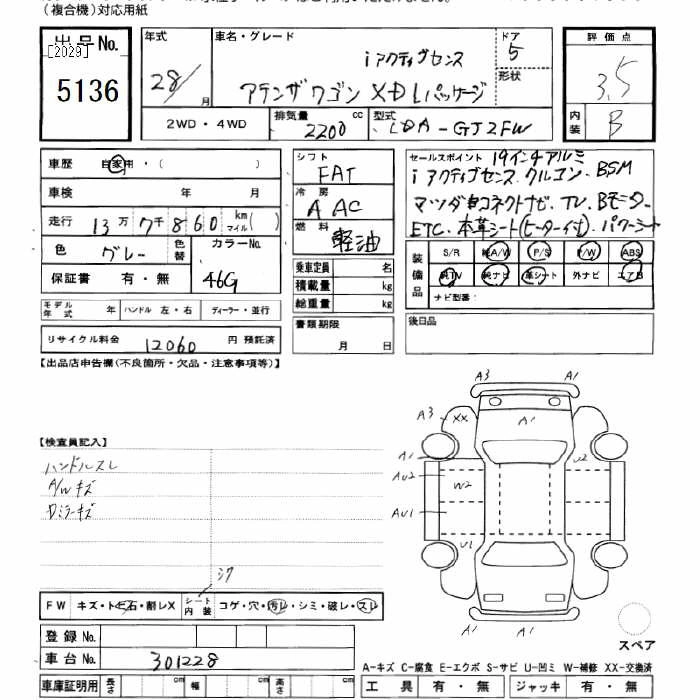 （複合機）対応用紙
出品No.
[2029]
5136
年式
28/
月
車名・グレード
iアクティブセンス
アテンザワゴン XDLパッケージ
ドア
5
形状
評価点
3.5
内装
B
2WD・4WD
排気量
2200
cc
型式
LDA-GJ2FW
車歴
自家用・（　　）
車検
年　月
走行
13万7千860
km
マイル（　）
色
グレー
色替
カラーNo.
46G
保証書
有・無
シフト
FAT
冷房
AAC
燃料
軽油
乗車定員
名
積載量
kg
総重量
kg
書類期限
月　日
モデル年式
年
ハンドル 左・右
ディーラー・並行
リサイクル料金
12060
円 預託済
セールスポイント 19インチアルミ
iアクティブセンス. クルコン. BSM
マツダコネクトナビ. TV. Bモニター
ETC. 本革シート(ヒーター付). パワーシート
装備品
S/R
純A/W
P/S
P/W
ABS
純TV
純ナビ
革シート
外ナビ
エアB
ナビ型番：
後日品
【出品店申告欄（不良箇所・欠品・注意事項等）】
【検査員記入】
ハンドルスレ
A/Wキズ
Dミラーキズ
シワ
A3
A1
A3
XX
A1
A1
U2
AU2
W2
AU1
U1
A1
A1
スペア
FW
キズ・トビ石・割レX
シート内装
コゲ・穴・汚レ・シミ・破レ・スレ
登録No.
車台No.
301228
車庫証明用
長さ
cm
幅
cm
高さ
cm
A-キズ C-腐食 E-エクボ S-サビ U-凹ミ W-補修 XX-交換済
工具
有・無
ジャッキ
有・無